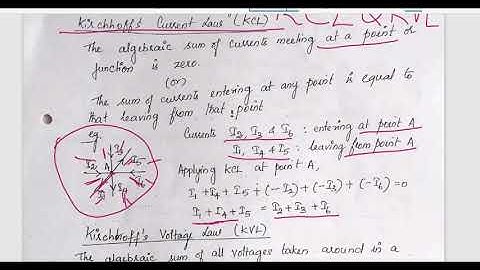 Kirchhoff's Current Law "(KCL)
KCL & KVL
The algebraic sum of currents meeting at a point or
function is zero.
(or)
The sum of currents entering at any point is equal to
that leaving from that point
eg.
Currents I2, I3 & I6 : entering at point A
I1, I4 & I5 : leaving from point A
Applying KCL at point A,
I1 + I4 + I5 + (-I2) + (-I3) + (-I6) = 0
I1 + I4 + I5 = I2 + I3 + I6
I3
I2 A I5
I6
I1 I4
Kirchhoff's Voltage Law (KVL)
The algebraic sum of all voltages taken around in a